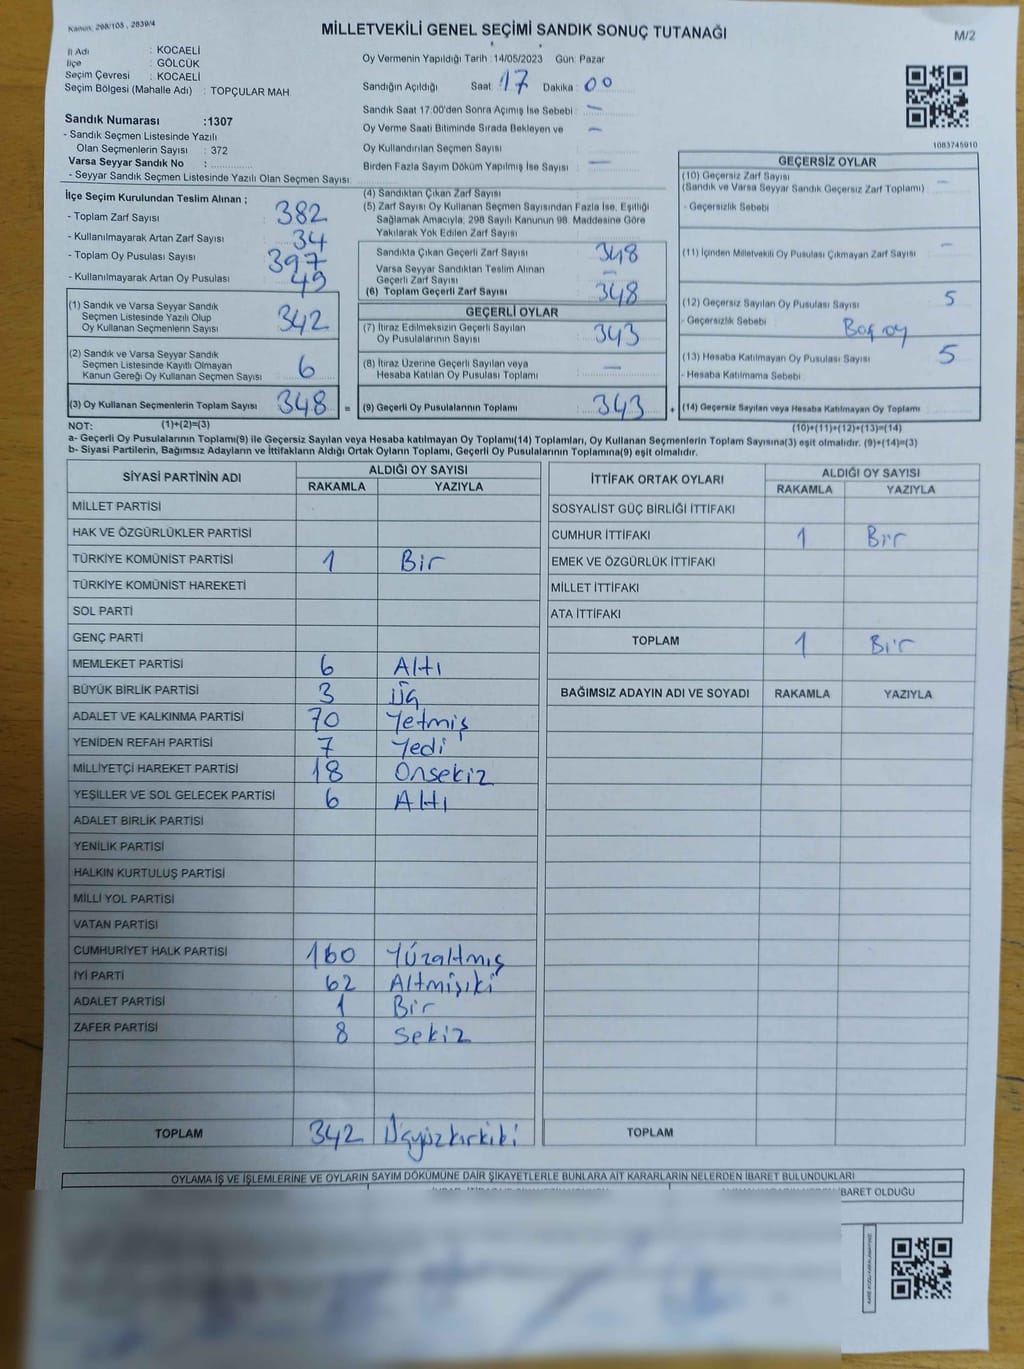 Kanun, 298/105 , 2839/4
MİLLETVEKİLİ GENEL SEÇİMİ SANDIK SONUÇ TUTANAĞI
M/2
İl Adı : KOCAELİ
İlçe : GÖLCÜK
Seçim Çevresi : KOCAELİ
Seçim Bölgesi (Mahalle Adı) : TOPÇULAR MAH.
Oy Vermenin Yapıldığı Tarih : 14/05/2023 Gün: Pazar
Sandığın Açıldığı Saat: 17 Dakika: 00
Sandık Saat 17:00'den Sonra Açımış İse Sebebi : —
Oy Verme Saati Bitiminde Sırada Bekleyen ve —
Oy Kullandırılan Seçmen Sayısı
Birden Fazla Sayım Döküm Yapılmış İse Sayısı : —
1083745910
Sandık Numarası :1307
- Sandık Seçmen Listesinde Yazılı
Olan Seçmenlerin Sayısı : 372
Varsa Seyyar Sandık No :
- Seyyar Sandık Seçmen Listesinde Yazılı Olan Seçmen Sayısı:
İlçe Seçim Kurulundan Teslim Alınan ;
- Toplam Zarf Sayısı 382
- Kullanılmayarak Artan Zarf Sayısı 34
- Toplam Oy Pusulası Sayısı 397
- Kullanılmayarak Artan Oy Pusulası 49
(1) Sandık ve Varsa Seyyar Sandık
Seçmen Listesinde Yazılı Olup
Oy Kullanan Seçmenlerin Sayısı 342
(2) Sandık ve Varsa Seyyar Sandık
Seçmen Listesinde Kayıtlı Olmayan
Kanun Gereği Oy Kullanan Seçmen Sayısı 6
(3) Oy Kullanan Seçmenlerin Toplam Sayısı 348 =
(1)+(2)=(3)
(4) Sandıktan Çıkan Zarf Sayısı
(5) Zarf Sayısı Oy Kullanan Seçmen Sayısından Fazla İse, Eşitliği
Sağlamak Amacıyla, 298 Sayılı Kanunun 98. Maddesine Göre
Yakılarak Yok Edilen Zarf Sayısı
Sandıkta Çıkan Geçerli Zarf Sayısı 348
Varsa Seyyar Sandıktan Teslim Alınan
Geçerli Zarf Sayısı —
(6) Toplam Geçerli Zarf Sayısı 348
GEÇERLİ OYLAR
(7) İtiraz Edilmeksizin Geçerli Sayılan
Oy Pusulalarının Sayısı 343
(8) İtiraz Üzerine Geçerli Sayılan veya
Hesaba Katılan Oy Pusulası Toplamı —
(9) Geçerli Oy Pusulalarının Toplamı 343 +
GEÇERSİZ OYLAR
(10) Geçersiz Zarf Sayısı —
(Sandık ve Varsa Seyyar Sandık Geçersiz Zarf Toplamı)
- Geçersizlik Sebebi
(11) İçinden Milletvekili Oy Pusulası Çıkmayan Zarf Sayısı —
(12) Geçersiz Sayılan Oy Pusulası Sayısı 5
- Geçersizlik Sebebi Boş oy
(13) Hesaba Katılmayan Oy Pusulası Sayısı 5
- Hesaba Katılmama Sebebi
(14) Geçersiz Sayılan veya Hesaba Katılmayan Oy Toplamı
(10)+(11)+(12)+(13)=(14)
NOT:
a- Geçerli Oy Pusulalarının Toplamı(9) ile Geçersiz Sayılan veya Hesaba katılmayan Oy Toplamı(14) Toplamları, Oy Kullanan Seçmenlerin Toplam Sayısına(3) eşit olmalıdır. (9)+(14)=(3)
b- Siyasi Partilerin, Bağımsız Adayların ve İttifakların Aldığı Ortak Oyların Toplamı, Geçerli Oy Pusulalarının Toplamına(9) eşit olmalıdır.
SİYASİ PARTİNİN ADI ALDIĞI OY SAYISI
RAKAMLA YAZIYLA
MİLLET PARTİSİ
HAK VE ÖZGÜRLÜKLER PARTİSİ
TÜRKİYE KOMÜNİST PARTİSİ 1 Bir
TÜRKİYE KOMÜNİST HAREKETİ
SOL PARTİ
GENÇ PARTİ
MEMLEKET PARTİSİ 6 Altı
BÜYÜK BİRLİK PARTİSİ 3 Üç
ADALET VE KALKINMA PARTİSİ 70 Yetmiş
YENİDEN REFAH PARTİSİ 7 Yedi
MİLLİYETÇİ HAREKET PARTİSİ 18 Onsekiz
YEŞİLLER VE SOL GELECEK PARTİSİ 6 Altı
ADALET BİRLİK PARTİSİ
YENİLİK PARTİSİ
HALKIN KURTULUŞ PARTİSİ
MİLLİ YOL PARTİSİ
VATAN PARTİSİ
CUMHURİYET HALK PARTİSİ 160 Yüzaltmış
İYİ PARTİ 62 Altmışiki
ADALET PARTİSİ 1 Bir
ZAFER PARTİSİ 8 Sekiz
TOPLAM 342 Üçyüzkırkiki
İTTİFAK ORTAK OYLARI ALDIĞI OY SAYISI
RAKAMLA YAZIYLA
SOSYALİST GÜÇ BİRLİĞİ İTTİFAKI
CUMHUR İTTİFAKI 1 Bir
EMEK VE ÖZGÜRLÜK İTTİFAKI
MİLLET İTTİFAKI
ATA İTTİFAKI
TOPLAM 1 Bir
BAĞIMSIZ ADAYIN ADI VE SOYADI RAKAMLA YAZIYLA
TOPLAM
OYLAMA İŞ VE İŞLEMLERİNE VE OYLARIN SAYIM DÖKÜMÜNE DAİR ŞİKAYETLERLE BUNLARA AİT KARARLARIN NELERDEN İBARET BULUNDUKLARI
BARET OLDUĞU